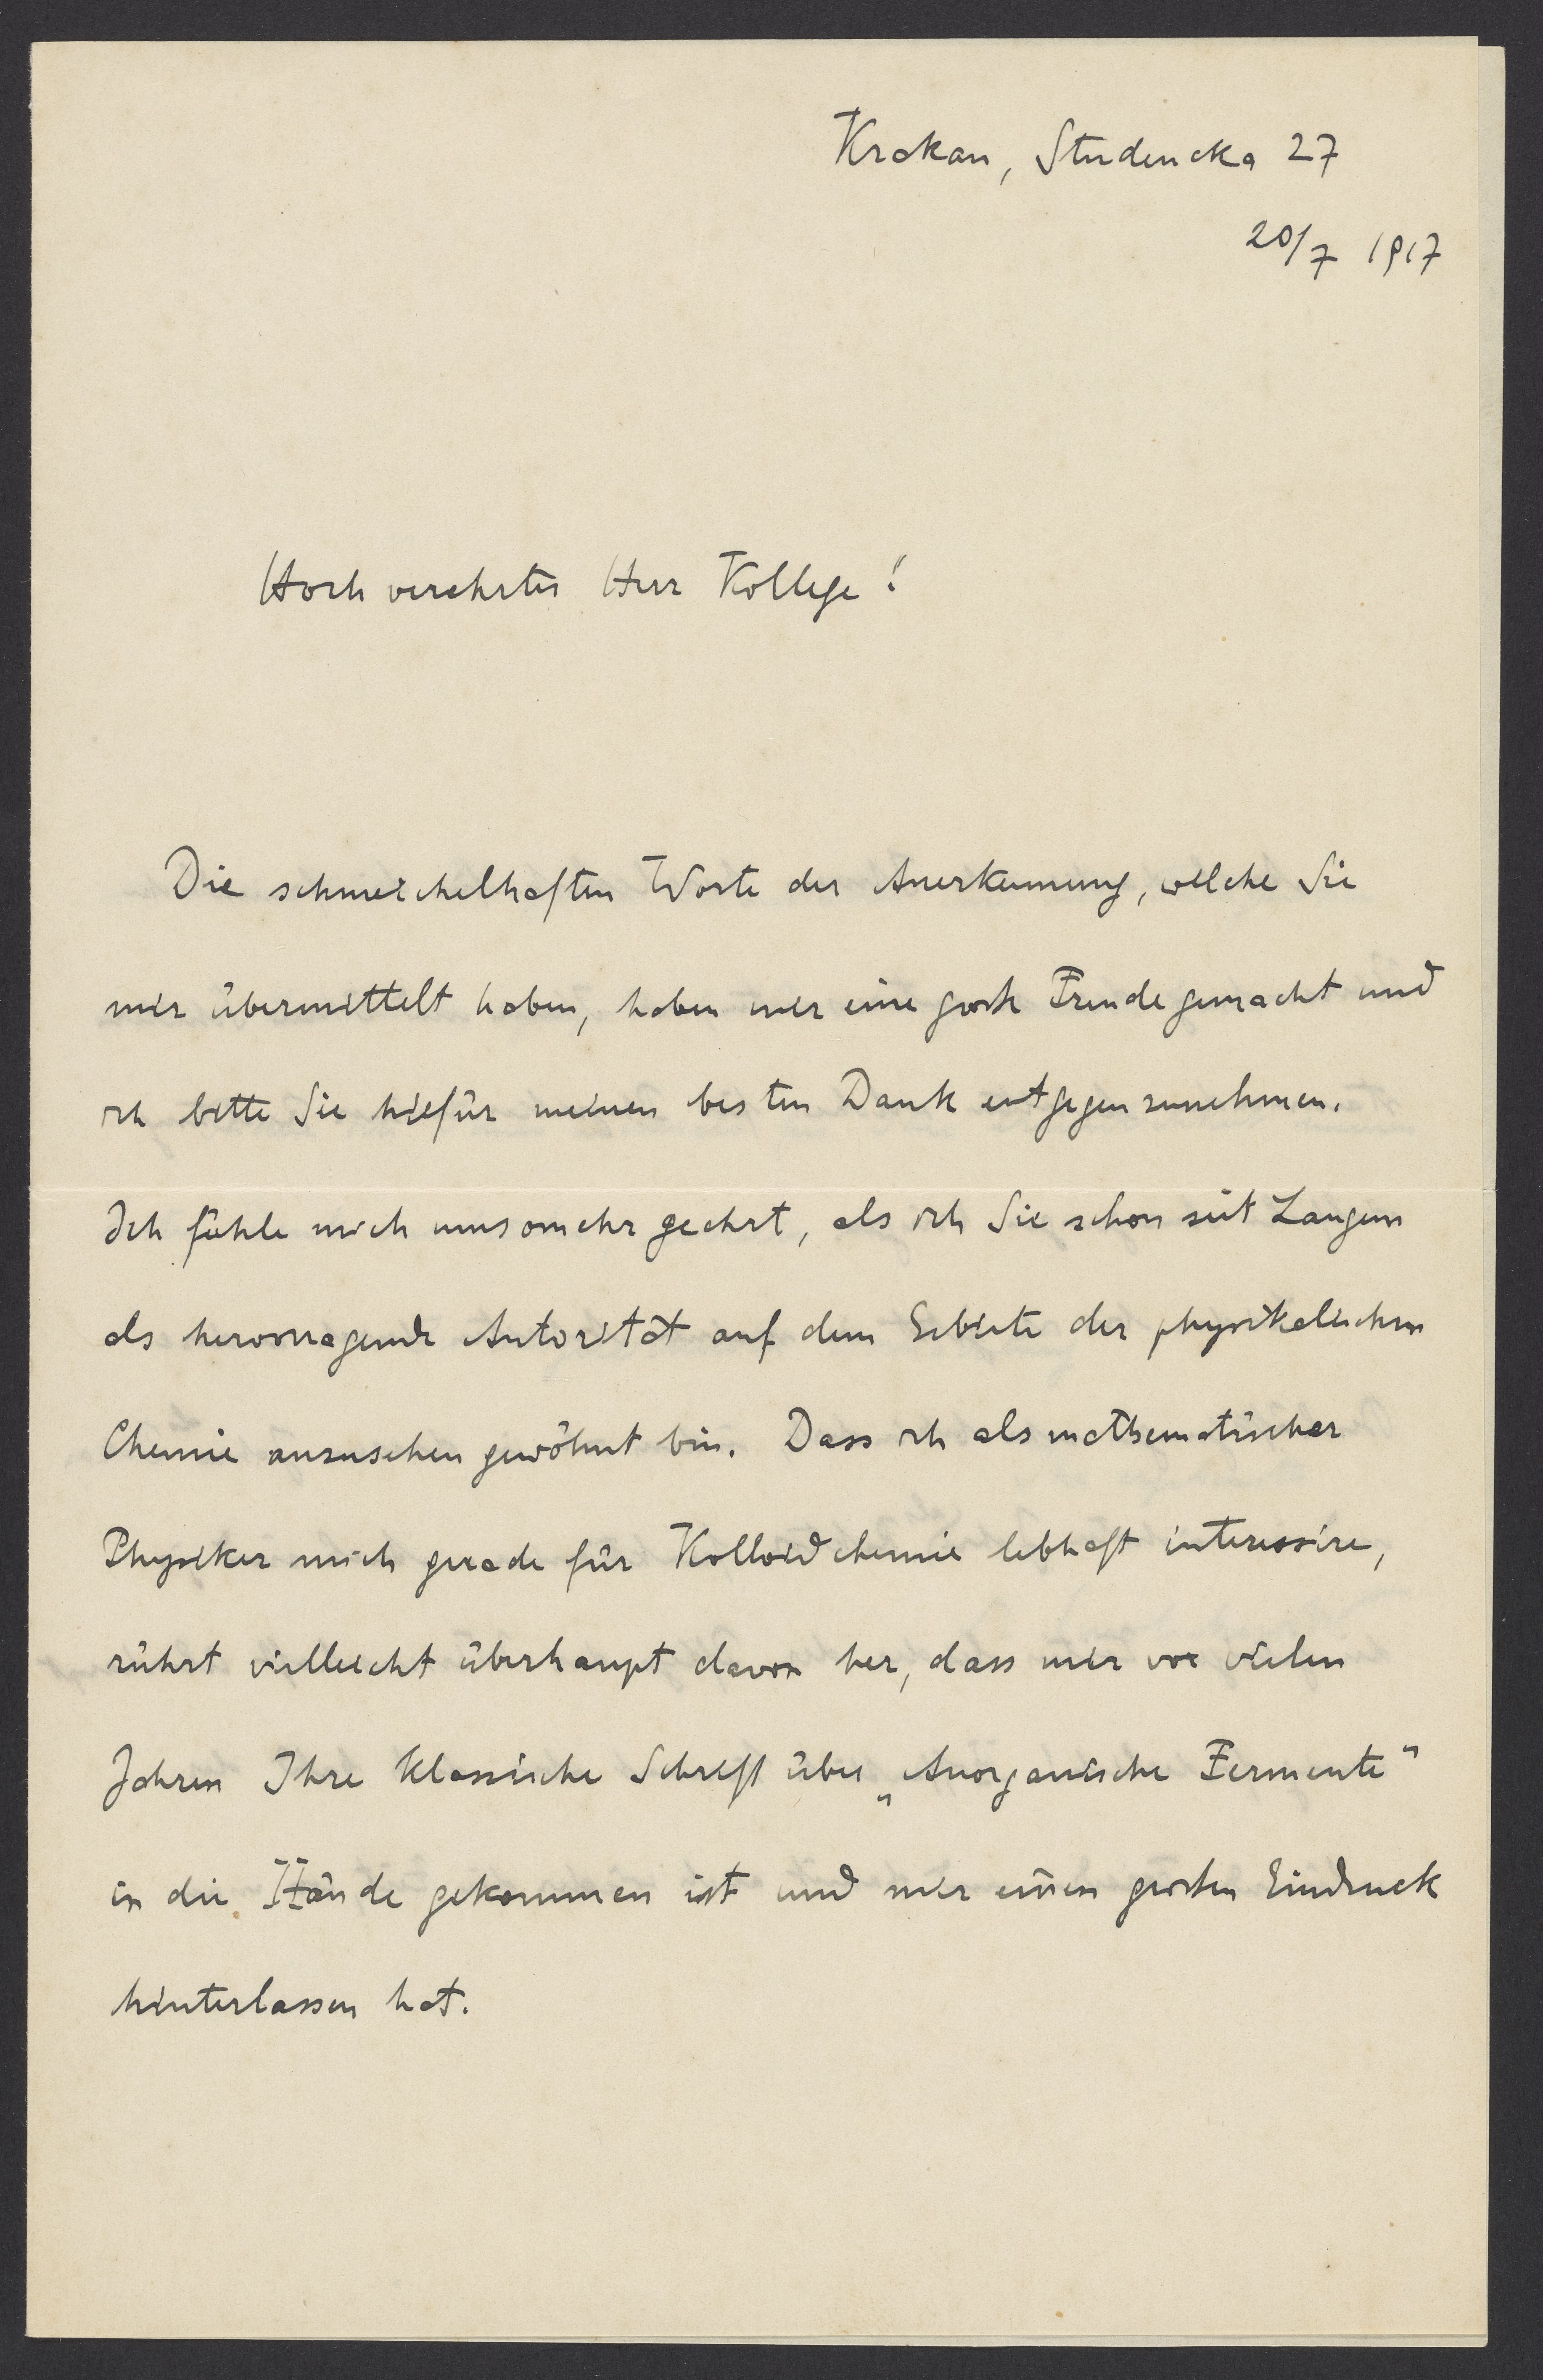 Krakau, Studencka 27
20/7 1917
Hochverehrter Herr Kollege!
Die schmeichelhaften Worte der Anerkennung, welche Sie
mir übermittelt haben, haben mir eine grosse Freude gemacht und
ich bitte Sie hiefür meinen besten Dank entgegenzunehmen.
Ich fühle mich umsomehr geehrt, als ich Sie schon seit Langem
als hervorragende Autorität auf dem Gebiete der physikalischen
Chemie anzusehen gewöhnt bin. Dass ich als mathematischer
Physiker mich gerade für Kolloidchemie lebhaft interessire,
rührt vielleicht überhaupt davon her, dass mir vor vielen
Jahren Ihre klassische Schrift über „Anorganische Fermente"
in die Hände gekommen ist und mir einen grossen Eindruck
hinterlassen hat.